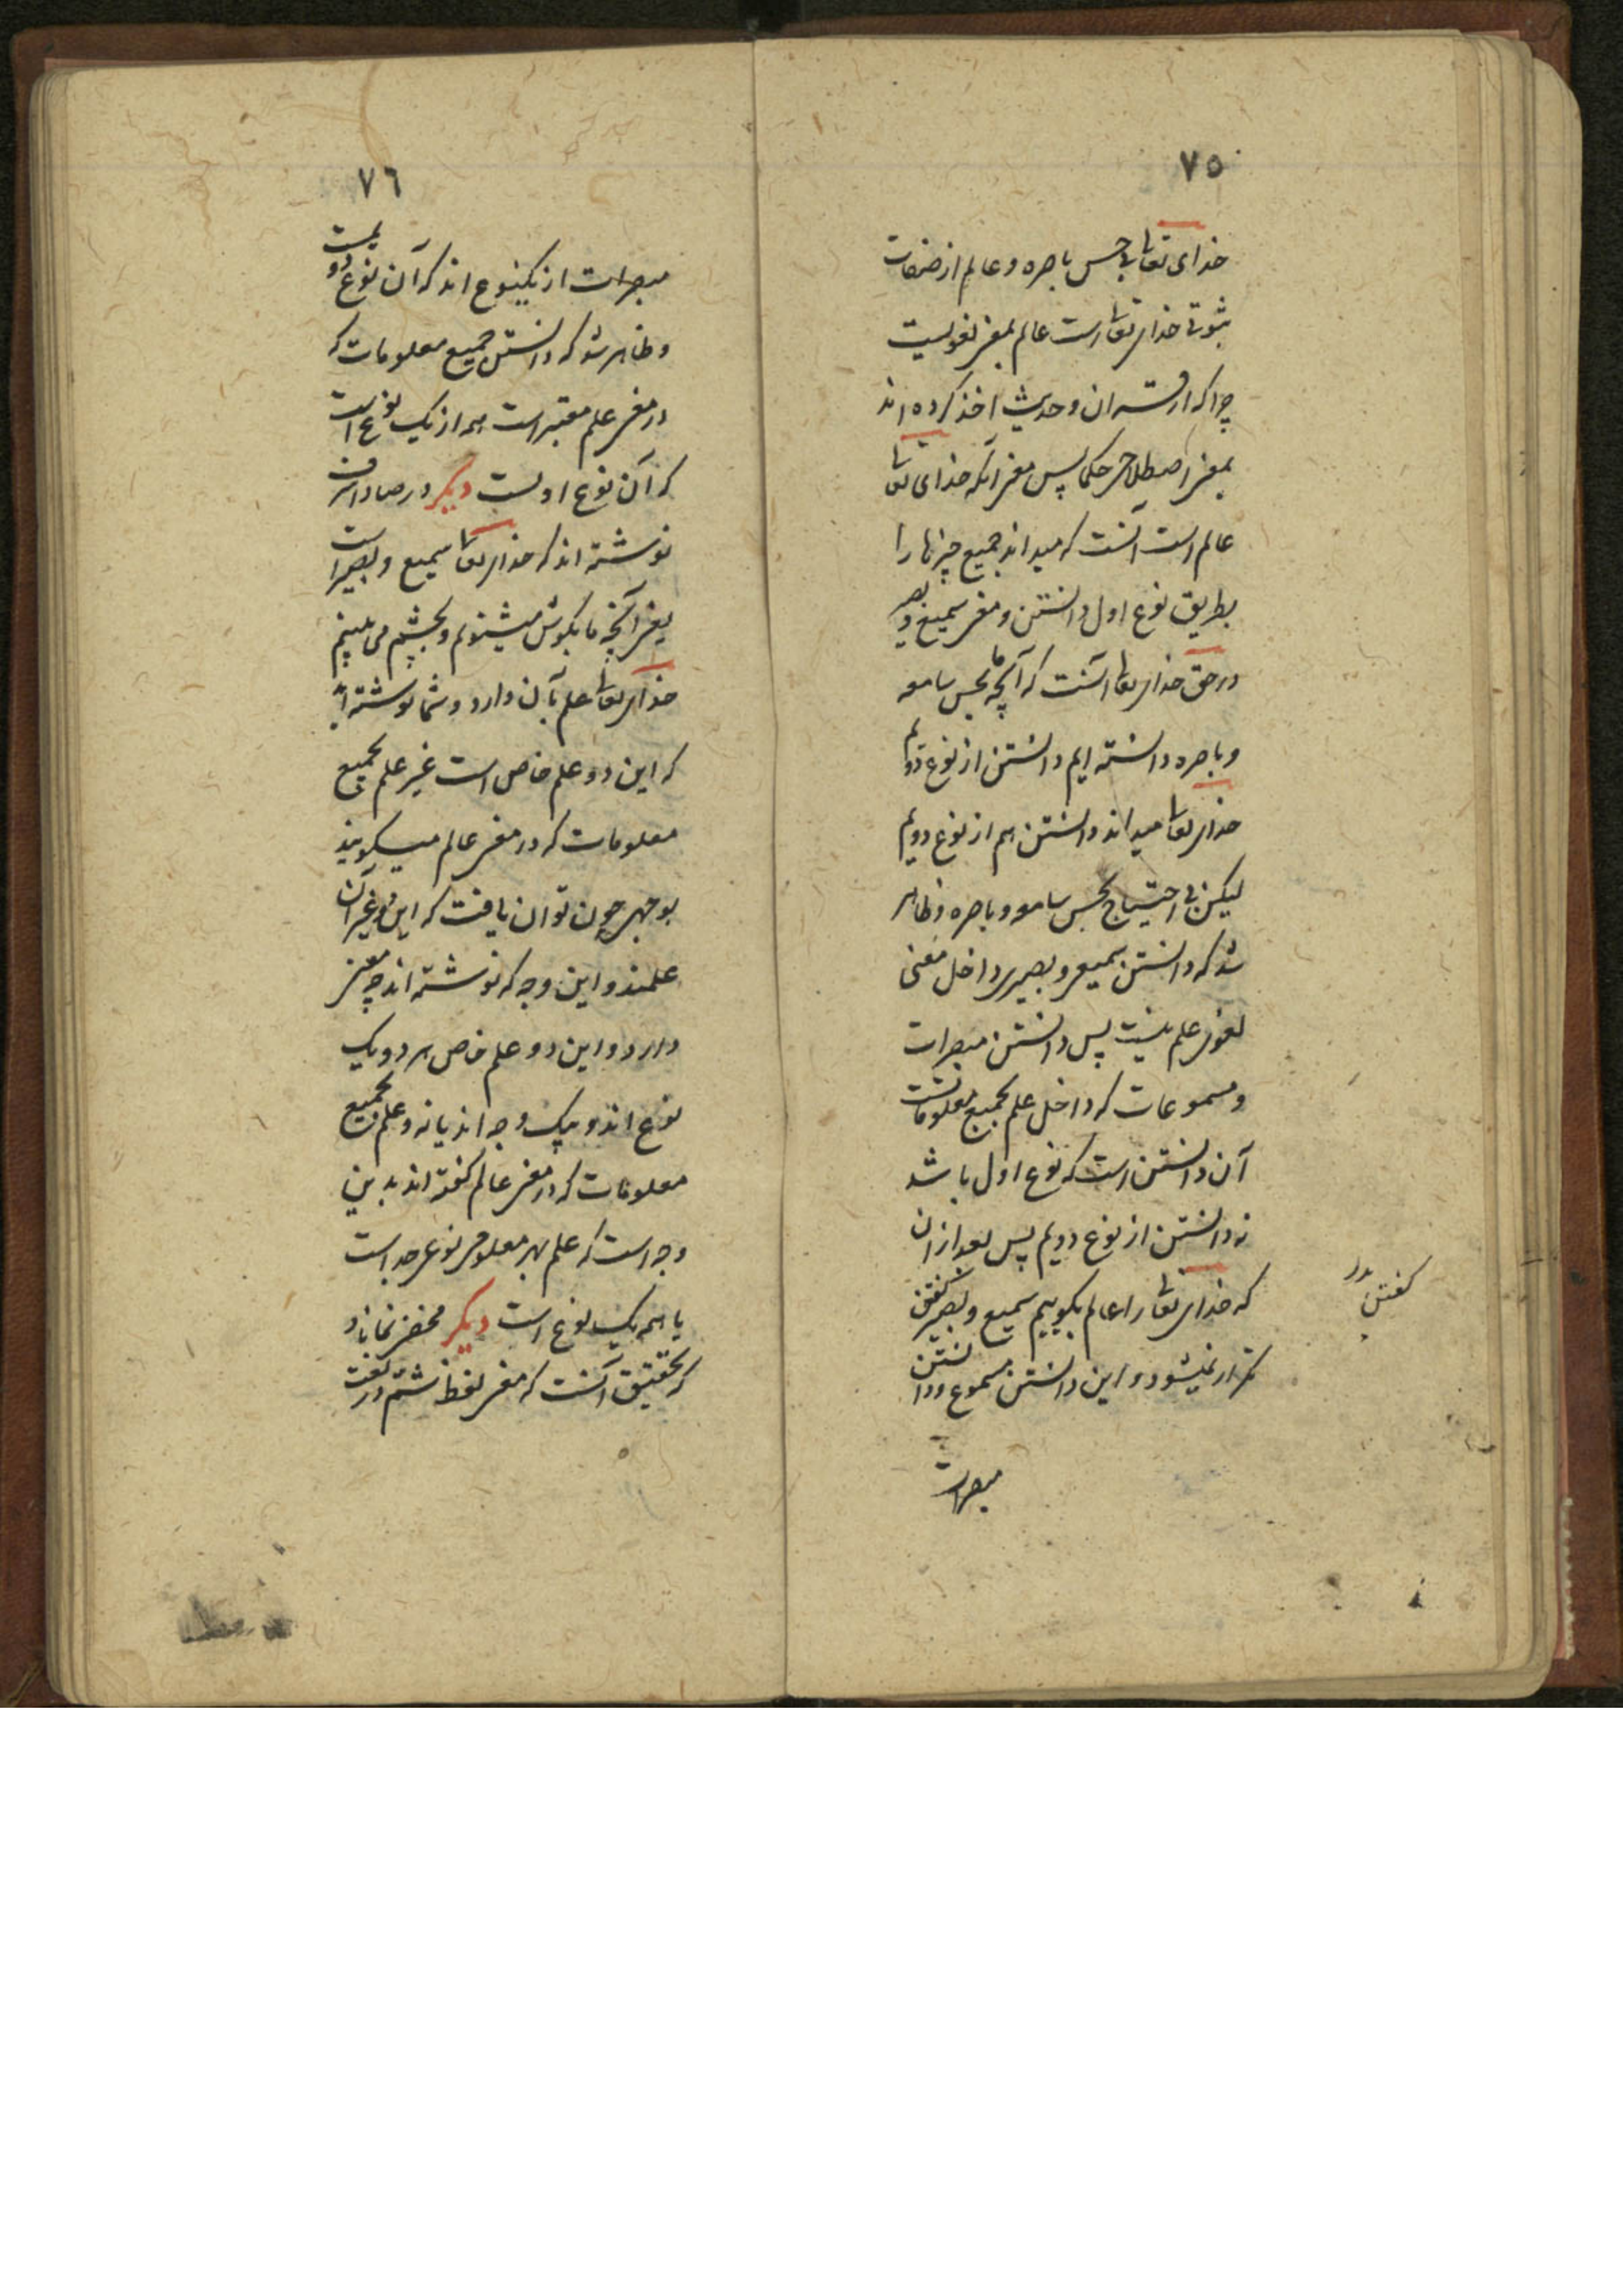 ۷۵
خدای تعا بی حس باصره و عالم از صفات
ثبوتی خدای تعا است عالم بمعنی لغویست
چرا که از قران و حدیث اخذ کرده اند
بمعنی اصطلاحی حکما پس معنی آنکه خدای تعا
عالم است آنست که میداند جمیع چیزها را
بطریق نوع اول دانستن و معنی سمیع و بصیر
در حق خدای تعا آنست که آنچه ما بحس سامعه
و باصره دانسته ایم دانستن از نوع دویم
خدای تعا میداند دانستن هم از نوع دویم
لیکن بی احتیاج بحس سامعه و باصره و ظاهر
شد که دانستن سمیعی و بصیری داخل معنی
لغوی علم نیست پس دانستن مبصرات
و مسموعات که داخل علم بجمیع معلوماتست
آن دانستن است که نوع اول باشد
نه دانستن از نوع دویم پس بعد از ان
که خدای تعا را عالم بگوییم سمیع و بصیر گفتن
تکرار نمیشود و این دانستن مسموع و دانستن
مبصرات
گفتن
۷٦
مبصرات از یکنوع اند که آن نوع دویمست
و ظاهر شد که دانستن جمیع معلومات که
در معنی علم معتبر است همه از یک نوع است
که آن نوع اولست دیگر در صادران
نوشته اند که خدای تعا سمیع و بصیر است
یعنی آنچه ما بگوش میشنویم و بچشم می بینیم
خدای تعا علم بآن دارد و شما نوشته اید
که این دو علم خاص است غیر علم بجمیع
معلومات که در معنی عالم میگویند
بوجهی چون توان یافت که این دو غیر آن
علمند و این وجه که نوشته اند چه معنی
دارد و این دو علم خاص هر دو یک
نوع اند و بیک وجه اند یا نه و علم بجمیع
معلومات که در معنی عالم گفته اند بدین
وجه است که علم بهر معلومی نوعی جداست
یا همه یک نوع است دیگر مخفی نماناد
که تحقیق آنست که معنی لفظ در لغت